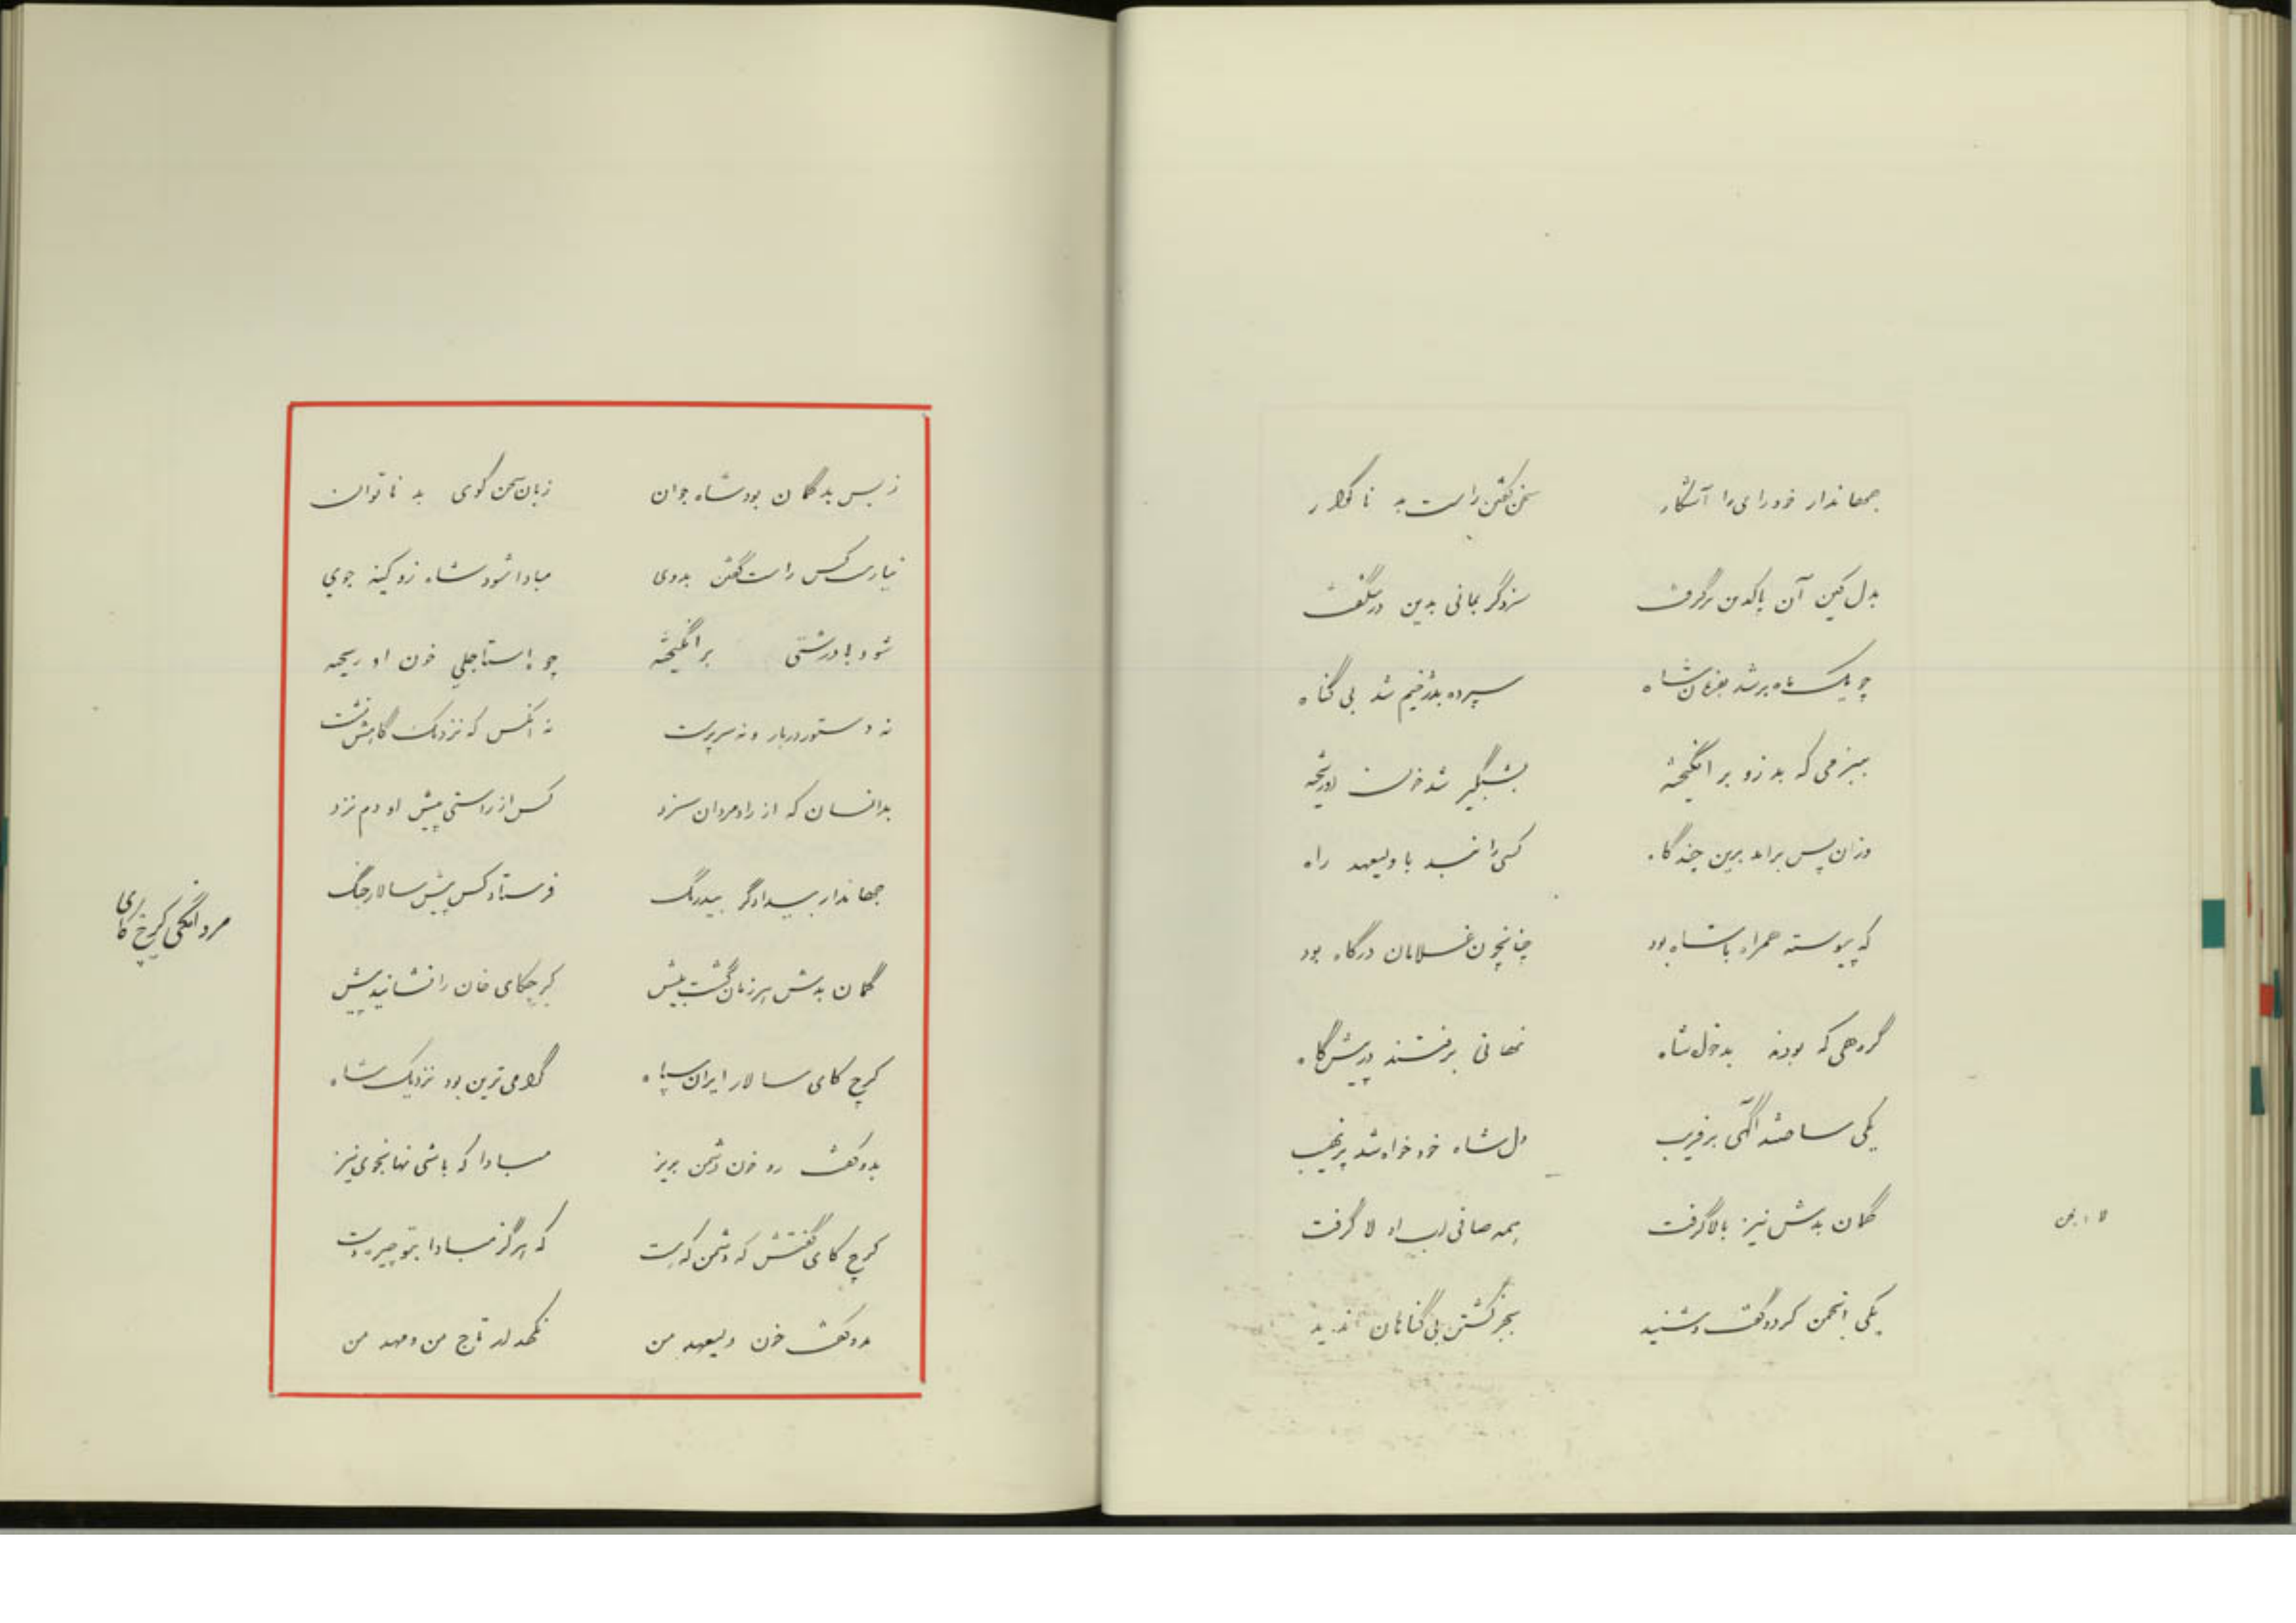 جهاندار خودرای را آشکار سخن گفتن راست بد ناگوار
بدل کین آن پاکدن برگرفت سزد گر بمانی بدین در شگفت
چو یک ماه بر شد بفرمان شاه سپرده بدژخیم شد بی گناه
ببزمی که بد زو بر انگیخته بشبگیر شد خون او ریخته
وزان پس برامد برین چند گاه کسی را نبد با ولیعهد راه
که پیوسته همراه با شاه بود چنانچون غلامان درگاه بود
گروهی که بودند بدخواه شاه نهانی برفتند در پیشگاه
یکی ساختند آگهی پر فریب دل شاه خودخواه شد پر نهیب
گمان بدش نیز بالا گرفت همه صافی او لا گرفت
لا
یکی انجمن کرد و گفت و شنید بجز کشتن بی گناهان ندید
ز بس بدگمان بود شاه جوان زبان سخن گوی بد ناتوان
نیارست کس راست گفتن بدوی مبادا شود شاه زو کینه جوی
شود با درشتی بر انگیخته چو استاجلی خون او ریخته
نه دستور دربار و نه سرپرست نه آنکس که نزدیک گاهش نشست
بدانسان که از رادمردان سزد کس از راستی پیش او دم نزد
جهاندار بیدادگر بیدرنگ فرستاد کس پیش سالار جنگ
مردانگی کرچ کای
گمان بدش هر زمان گشت بیش کرچکای خان را نشانید پیش
کرچ کای سالار ایران سپاه گرامی ترین بود نزدیک شاه
بدو گفت رو خون دشمن بریز مبادا که باشی نهانجوی نیز
کرچ کای گفتش که دشمن که است که هرگز مبادا بتو چیره دست
بدو گفت خون ولیعهد من نگهدار تاج من و مهد من